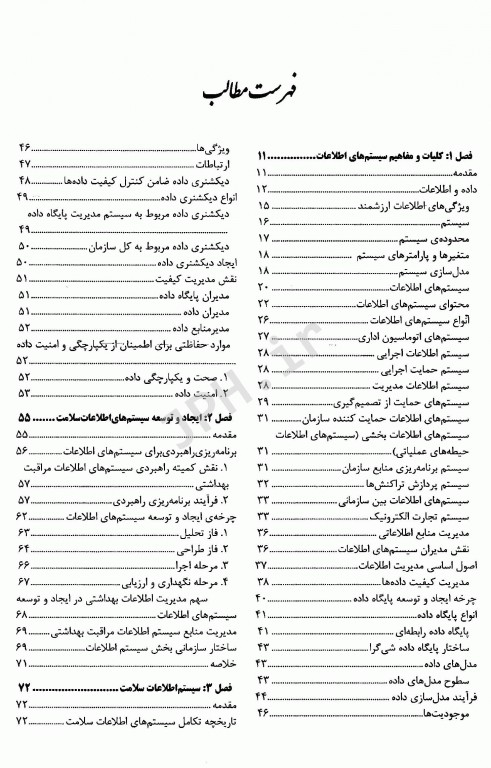 فهرست مطالب
فصل ۱: کلیات و مفاهیم سیستم‌های اطلاعات...............۱۱
مقدمه...............۱۱
داده و اطلاعات...............۱۲
ویژگی‌های اطلاعات ارزشمند...............۱۵
سیستم...............۱۶
محدوده‌ی سیستم...............۱۷
متغیرها و پارامترهای سیستم...............۱۸
مدل‌سازی سیستم...............۱۸
سیستم‌های اطلاعات...............۲۰
محتوای سیستم‌های اطلاعات...............۲۲
انواع سیستم‌های اطلاعات...............۲۶
سیستم‌های اتوماسیون اداری...............۲۷
سیستم اطلاعات اجرایی...............۲۸
سیستم حمایت اجرایی...............۲۸
سیستم اطلاعات مدیریت...............۲۸
سیستم‌های حمایت از تصمیم‌گیری...............۲۹
سیستم‌های اطلاعات حمایت کننده سازمان...............۳۱
سیستم‌های اطلاعات بخشی (سیستم‌های اطلاعات
حیطه‌های عملیاتی)...............۳۱
سیستم برنامه‌ریزی منابع سازمان...............۳۱
سیستم پردازش تراکنش‌ها...............۳۲
سیستم‌های اطلاعات بین سازمانی...............۳۳
سیستم تجارت الکترونیک...............۳۳
مدیریت منابع اطلاعاتی...............۳۶
نقش مدیران سیستم‌های اطلاعات...............۳۶
اصول اساسی مدیریت اطلاعات...............۳۷
مدیریت کیفیت داده‌ها...............۳۸
چرخه ایجاد و توسعه پایگاه داده...............۴۰
انواع پایگاه داده...............۴۱
پایگاه داده رابطه‌ای...............۴۱
ساختار پایگاه داده شی‌گرا...............۴۳
مدل‌های داده...............۴۳
سطوح مدل‌های داده...............۴۳
فرآیند مدل‌سازی داده...............۴۴
موجودیت‌ها...............۴۶
ویژگی‌ها...............۴۶
ارتباطات...............۴۷
دیکشنری داده ضامن کنترل کیفیت داده‌ها...............۴۸
انواع دیکشنری داده...............۴۹
دیکشنری داده مربوط به سیستم مدیریت پایگاه داده
...............۴۹
دیکشنری داده مربوط به کل سازمان...............۵۰
ایجاد دیکشنری داده...............۵۰
نقش مدیریت کیفیت...............۵۱
مدیران پایگاه داده...............۵۱
مدیران داده...............۵۱
مدیرمنابع داده...............۵۲
موارد حفاظتی برای اطمینان از یکپارچگی و امنیت داده
...............۵۲
۱. صحت و یکپارچگی داده...............۵۲
۲. امنیت داده...............۵۳
فصل ۲: ایجاد و توسعه سیستم‌های‌اطلاعات‌سلامت.......۵۵
مقدمه...............۵۵
برنامه‌ریزی‌راهبردی‌برای سیستم‌های اطلاعات...............۵۶
۱. نقش کمیته راهبردی سیستم‌های اطلاعات مراقبت
بهداشتی...............۵۷
۲. فرآیند برنامه‌ریزی راهبردی...............۵۷
چرخه‌ی ایجاد و توسعه سیستم‌های اطلاعات...............۶۲
۱. فاز تحلیل...............۶۳
۲. فاز طراحی...............۶۴
۳. مرحله اجرا...............۶۶
۴. مرحله نگهداری و ارزیابی...............۶۷
سهم مدیریت اطلاعات بهداشتی در ایجاد و توسعه
سیستم‌های اطلاعات...............۶۸
مدیریت منابع سیستم اطلاعات مراقبت بهداشتی...............۶۹
ساختار سازمانی بخش سیستم اطلاعات...............۶۹
خلاصه...............۷۱
فصل ۳: سیستم‌اطلاعات سلامت...............۷۲
مقدمه...............۷۲
تاریخچه تکامل سیستم‌های اطلاعات سلامت...............۷۲
JPH.ir